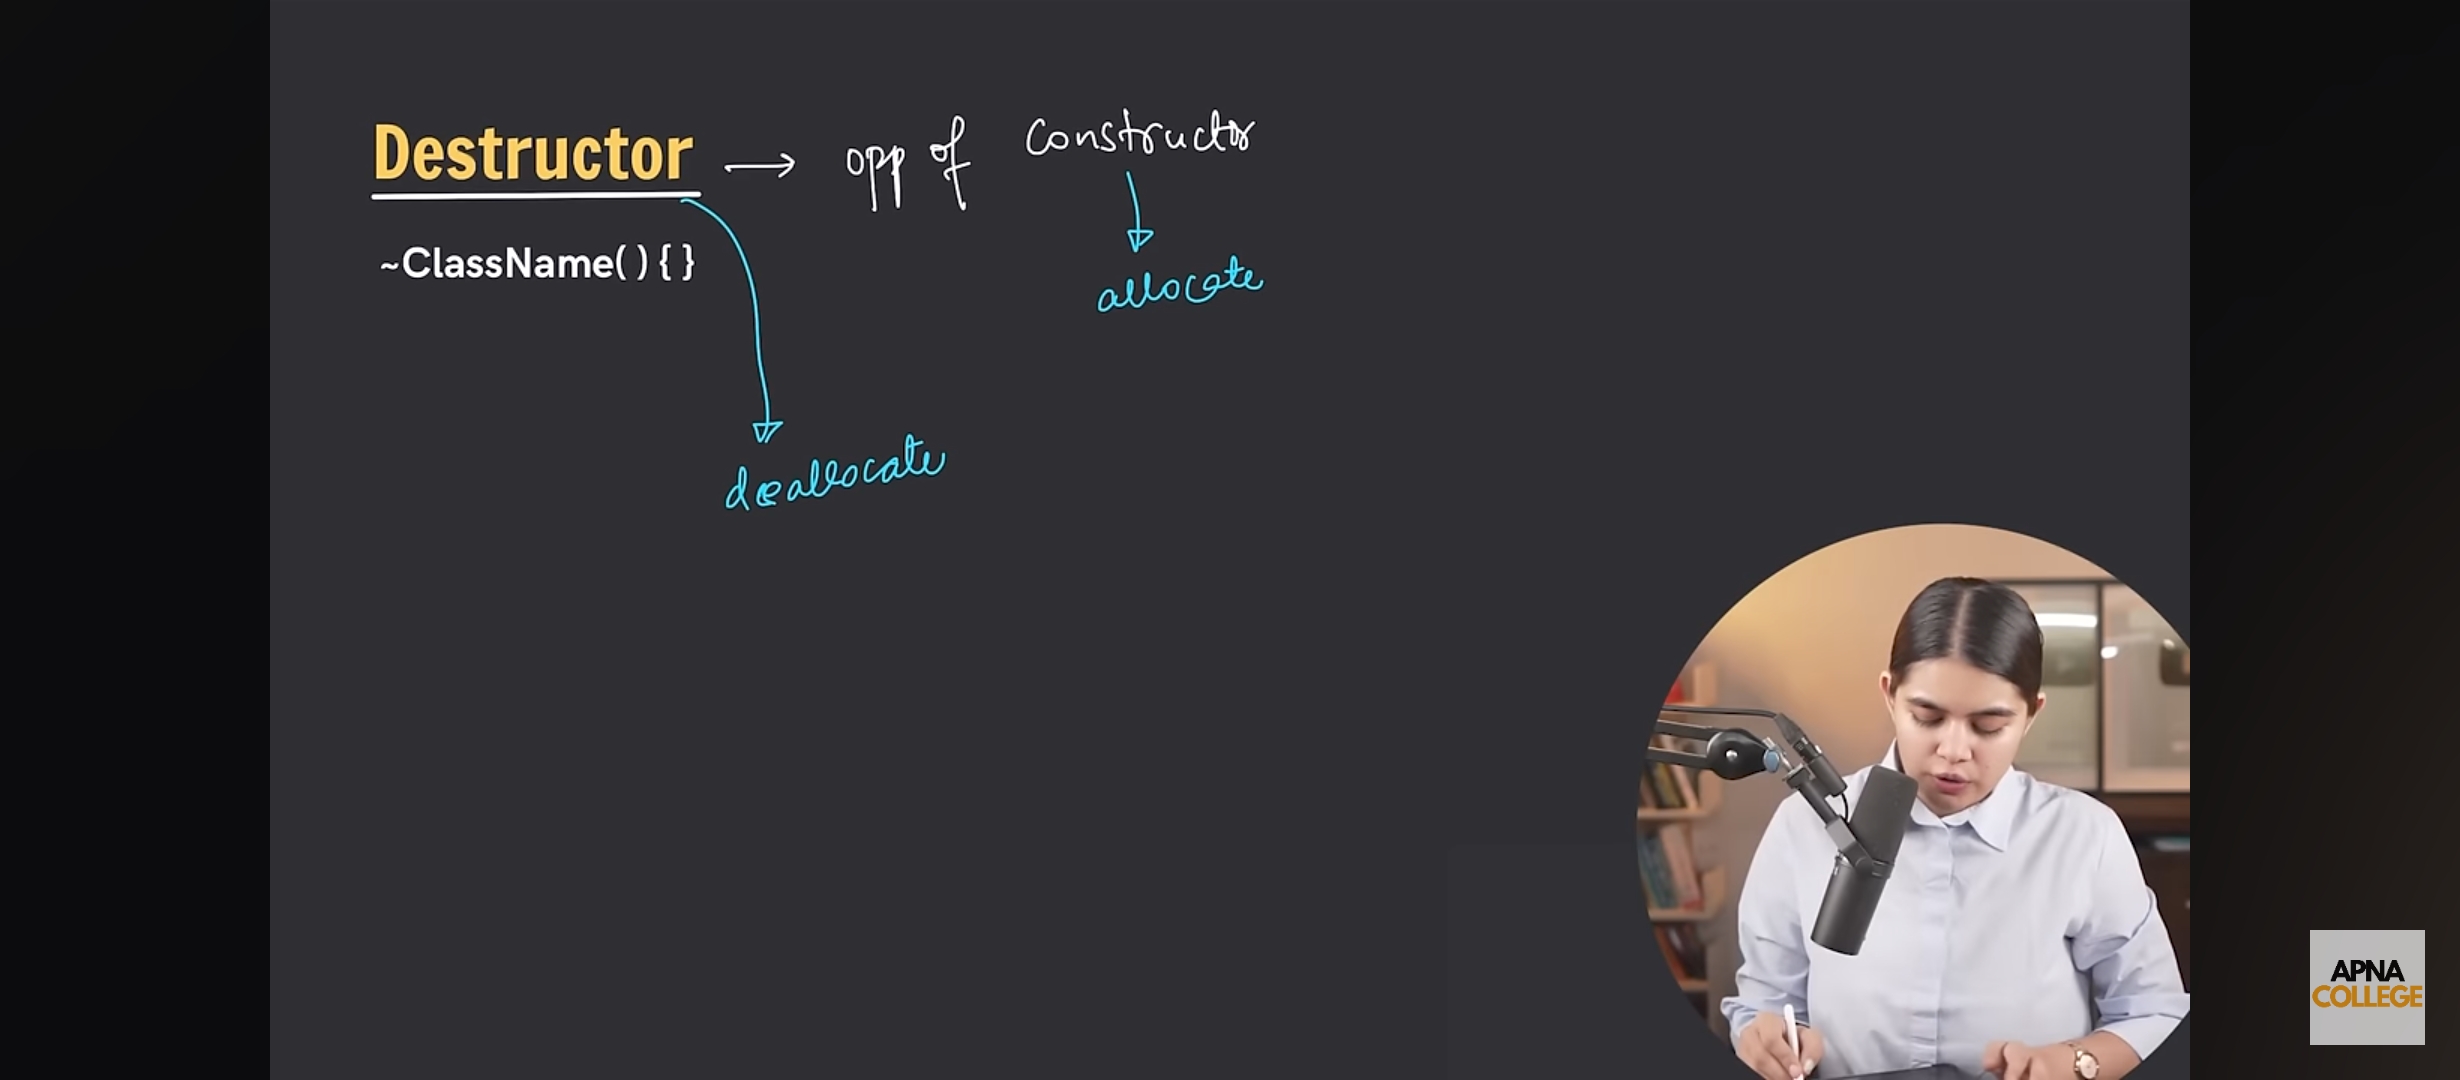 Destructor → opp of Constructor
~ClassName( ) { }
allocate
deallocate
APNA
COLLEGE